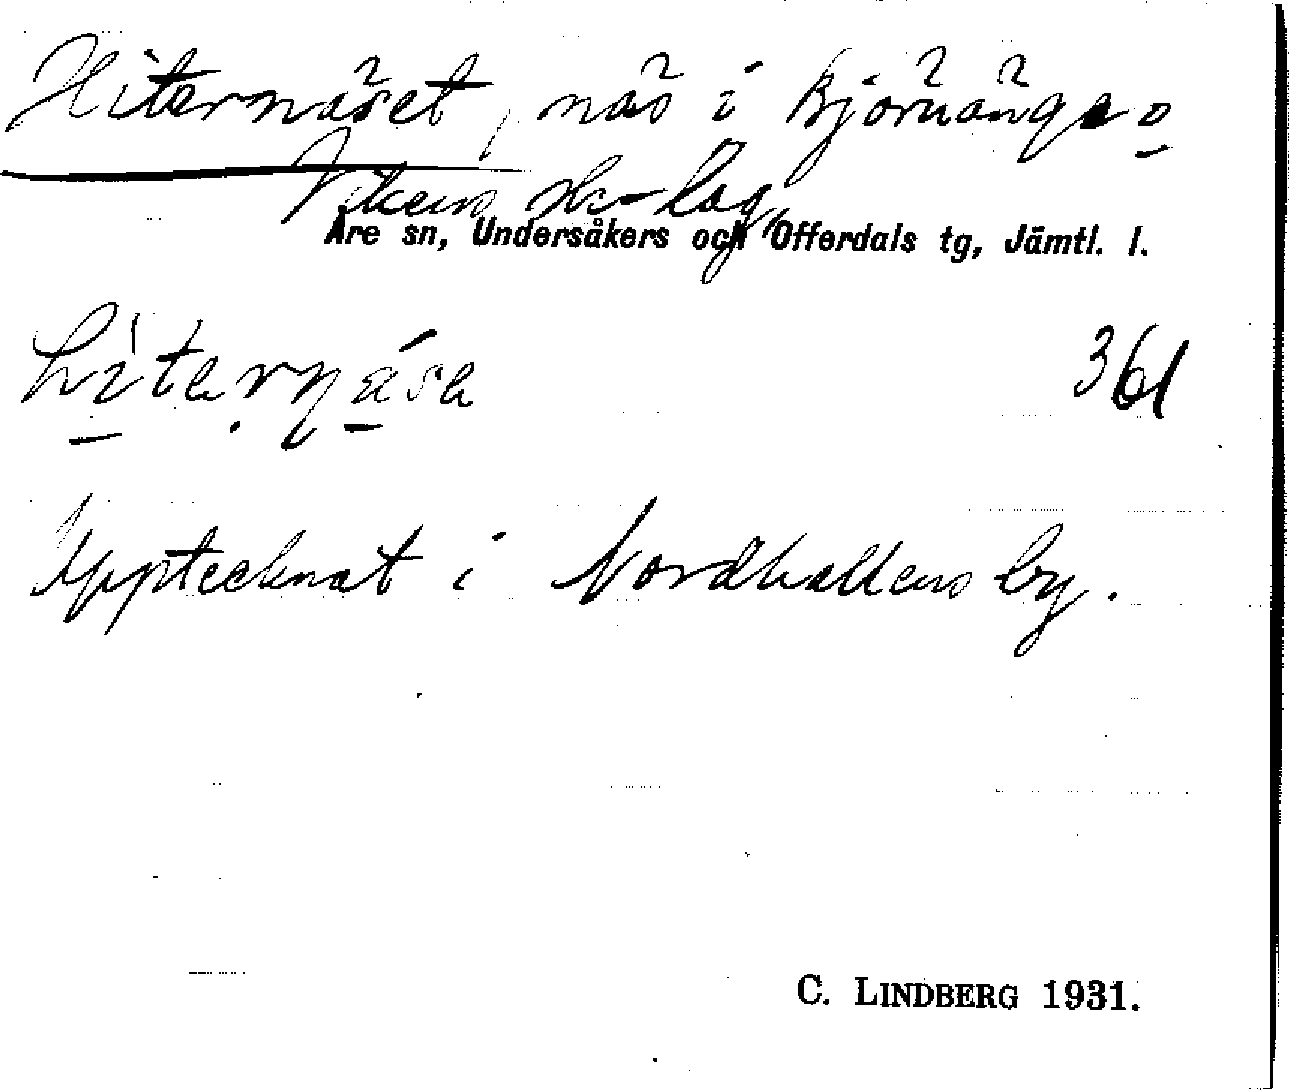 Hiternäset, näs i Björnänge o
Vikens sk-lag,
Åre sn, Undersåkers och Offerdals tg, Jämtl. l.
361
Upptecknat i Nordhallens by.
C. LINDBERG 1931.